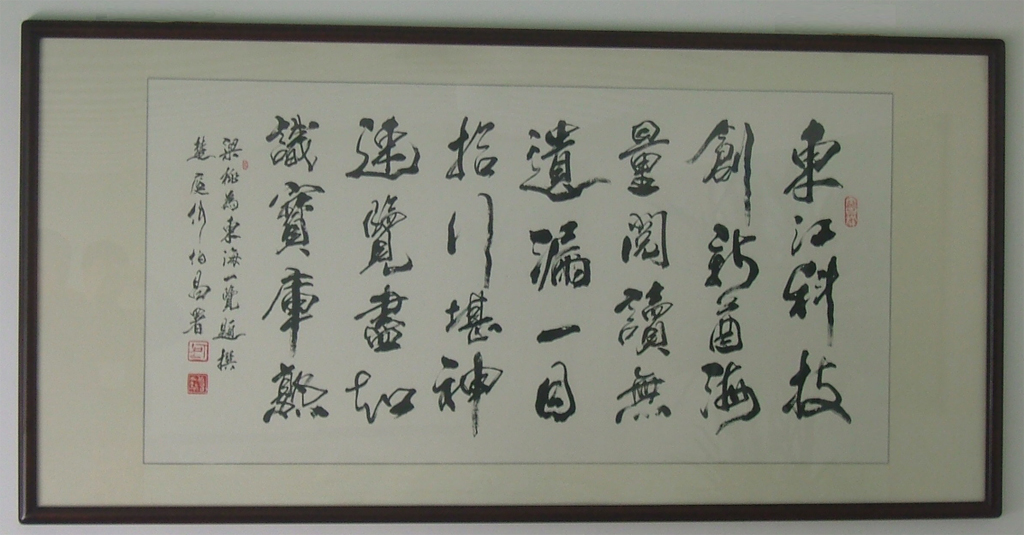 東江科技
創新酋海
量閱讀無
遺漏一目
拾行堪神
速覽盡知
識寶庫繁
梁為東海一覽題撰
楚庭何伯昌署